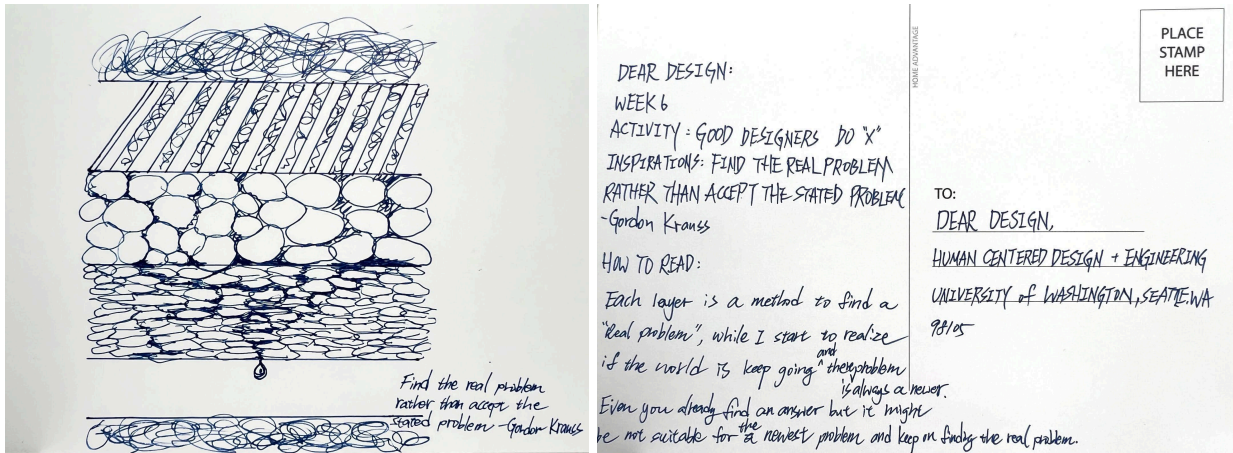 Find the real problem
rather than accept the
stated problem -Gordon Krauss
DEAR DESIGN:
WEEK 6
ACTIVITY: GOOD DESIGNERS DO "X"
INSPIRATIONS: FIND THE REAL PROBLEM
RATHER THAN ACCEPT THE STATED PROBLEM
-Gordon Krauss
HOW TO READ:
Each layer is a method to find a
"Real problem", while I start to realize
if the world is keep going and there problem
is always a newer.
Even you already find an answer but it might
be not suitable for the a newest problem and keep on finding the real problem.
HOME ADVANTAGE
PLACE
STAMP
HERE
TO:
DEAR DESIGN,
HUMAN CENTERED DESIGN + ENGINEERING
UNIVERSITY of WASHINGTON, SEATTLE.WA
98105